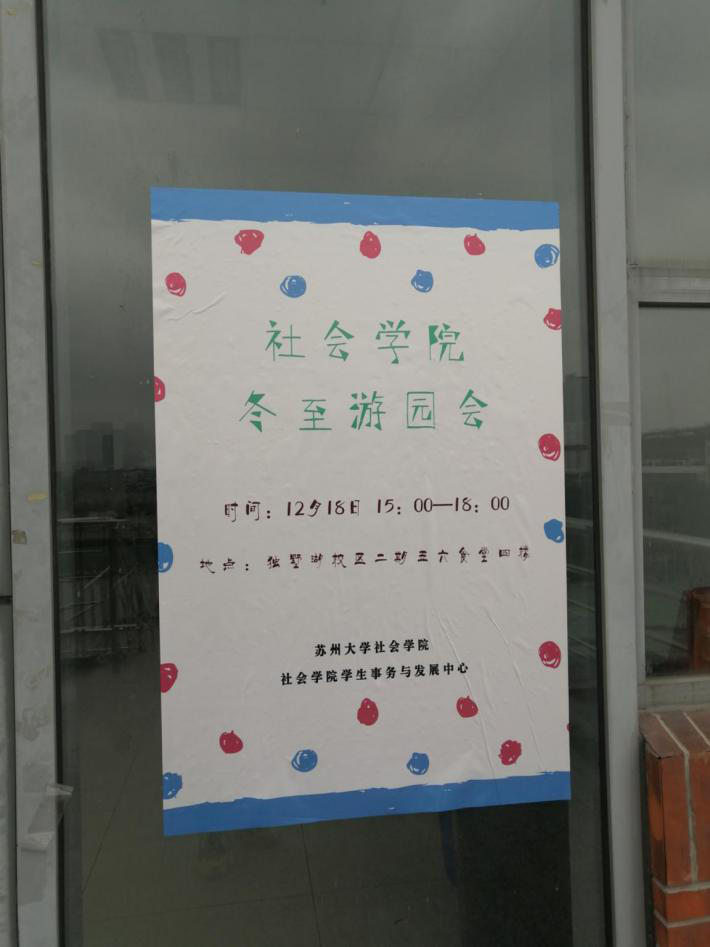 社会学院
冬至游园会
时间：12月18日 15：00—18：00
地点：独墅湖校区二期五六食堂四楼
苏州大学社会学院
社会学院学生事务与发展中心